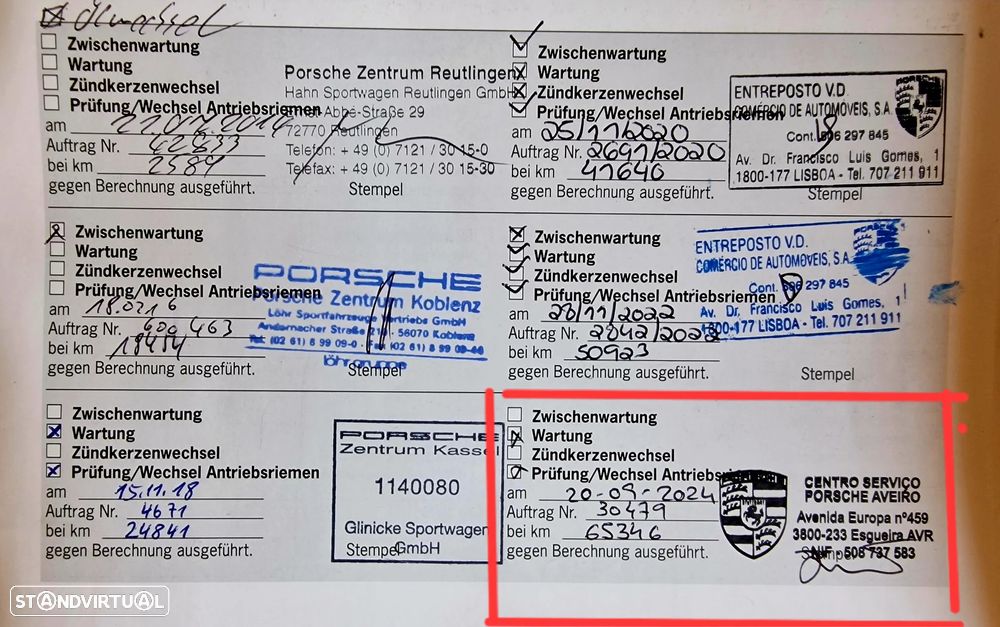 Ölwechsel
Zwischenwartung
Wartung
Zündkerzenwechsel
Prüfung/Wechsel Antriebsriemen
am 22.07.2014
Auftrag Nr. 42833
bei km 2584
gegen Berechnung ausgeführt.
Porsche Zentrum Reutlingen
Hahn Sportwagen Reutlingen GmbH
Ernst-Abbé-Straße 29
72770 Reutlingen
Telefon: + 49 (0) 7121 / 30 15-0
Telefax: + 49 (0) 7121 / 30 15-30
Stempel
Zwischenwartung
Wartung
Zündkerzenwechsel
Prüfung/Wechsel Antriebsriemen
am 18.02.16
Auftrag Nr. 400 463
bei km
gegen Berechnung ausgeführt.
PORSCHE
Porsche Zentrum Koblenz
Löhr Sportfahrzeuge Vertriebs GmbH
Andernacher Straße 56070 Koblenz
Tel. (02 61) 8 99 09-0 · Fax (02 61) 8 99 09-
löhrgruppe
Stempel
Zwischenwartung
Wartung
Zündkerzenwechsel
Prüfung/Wechsel Antriebsriemen
am 15.11.18
Auftrag Nr. 4671
bei km 24841
gegen Berechnung ausgeführt.
PORSCHE
Zentrum Kassel
1140080
Glinicke Sportwagen
GmbH
Stempel
Zwischenwartung
Wartung
Zündkerzenwechsel
Prüfung/Wechsel Antriebsriemen
am 25/11/2020
Auftrag Nr. 2691/2020
bei km 41640
gegen Berechnung ausgeführt.
ENTREPOSTO V.D.
COMÉRCIO DE AUTOMÓVEIS, S.A.
Cont. 506 297 845
Av. Dr. Francisco Luis Gomes, 1
1800-177 LISBOA - Tel. 707 211 911
Stempel
Zwischenwartung
Wartung
Zündkerzenwechsel
Prüfung/Wechsel Antriebsriemen
am 28/11/2022
Auftrag Nr. 2842/2022
bei km 50923
gegen Berechnung ausgeführt.
ENTREPOSTO V.D.
COMÉRCIO DE AUTOMÓVEIS, S.A.
Cont. 506 297 845
Av. Dr. Francisco Luis Gomes, 1
1800-177 LISBOA - Tel. 707 211 911
Stempel
Zwischenwartung
Wartung
Zündkerzenwechsel
Prüfung/Wechsel Antriebsriemen
am 20-09-2024
Auftrag Nr. 30479
bei km 65346
gegen Berechnung ausgeführt.
CENTRO SERVIÇO
PORSCHE AVEIRO
Avenida Europa nº459
3800-233 Esgueira AVR
NIF - 508 737 583
Stempel
STANDVIRTUAL